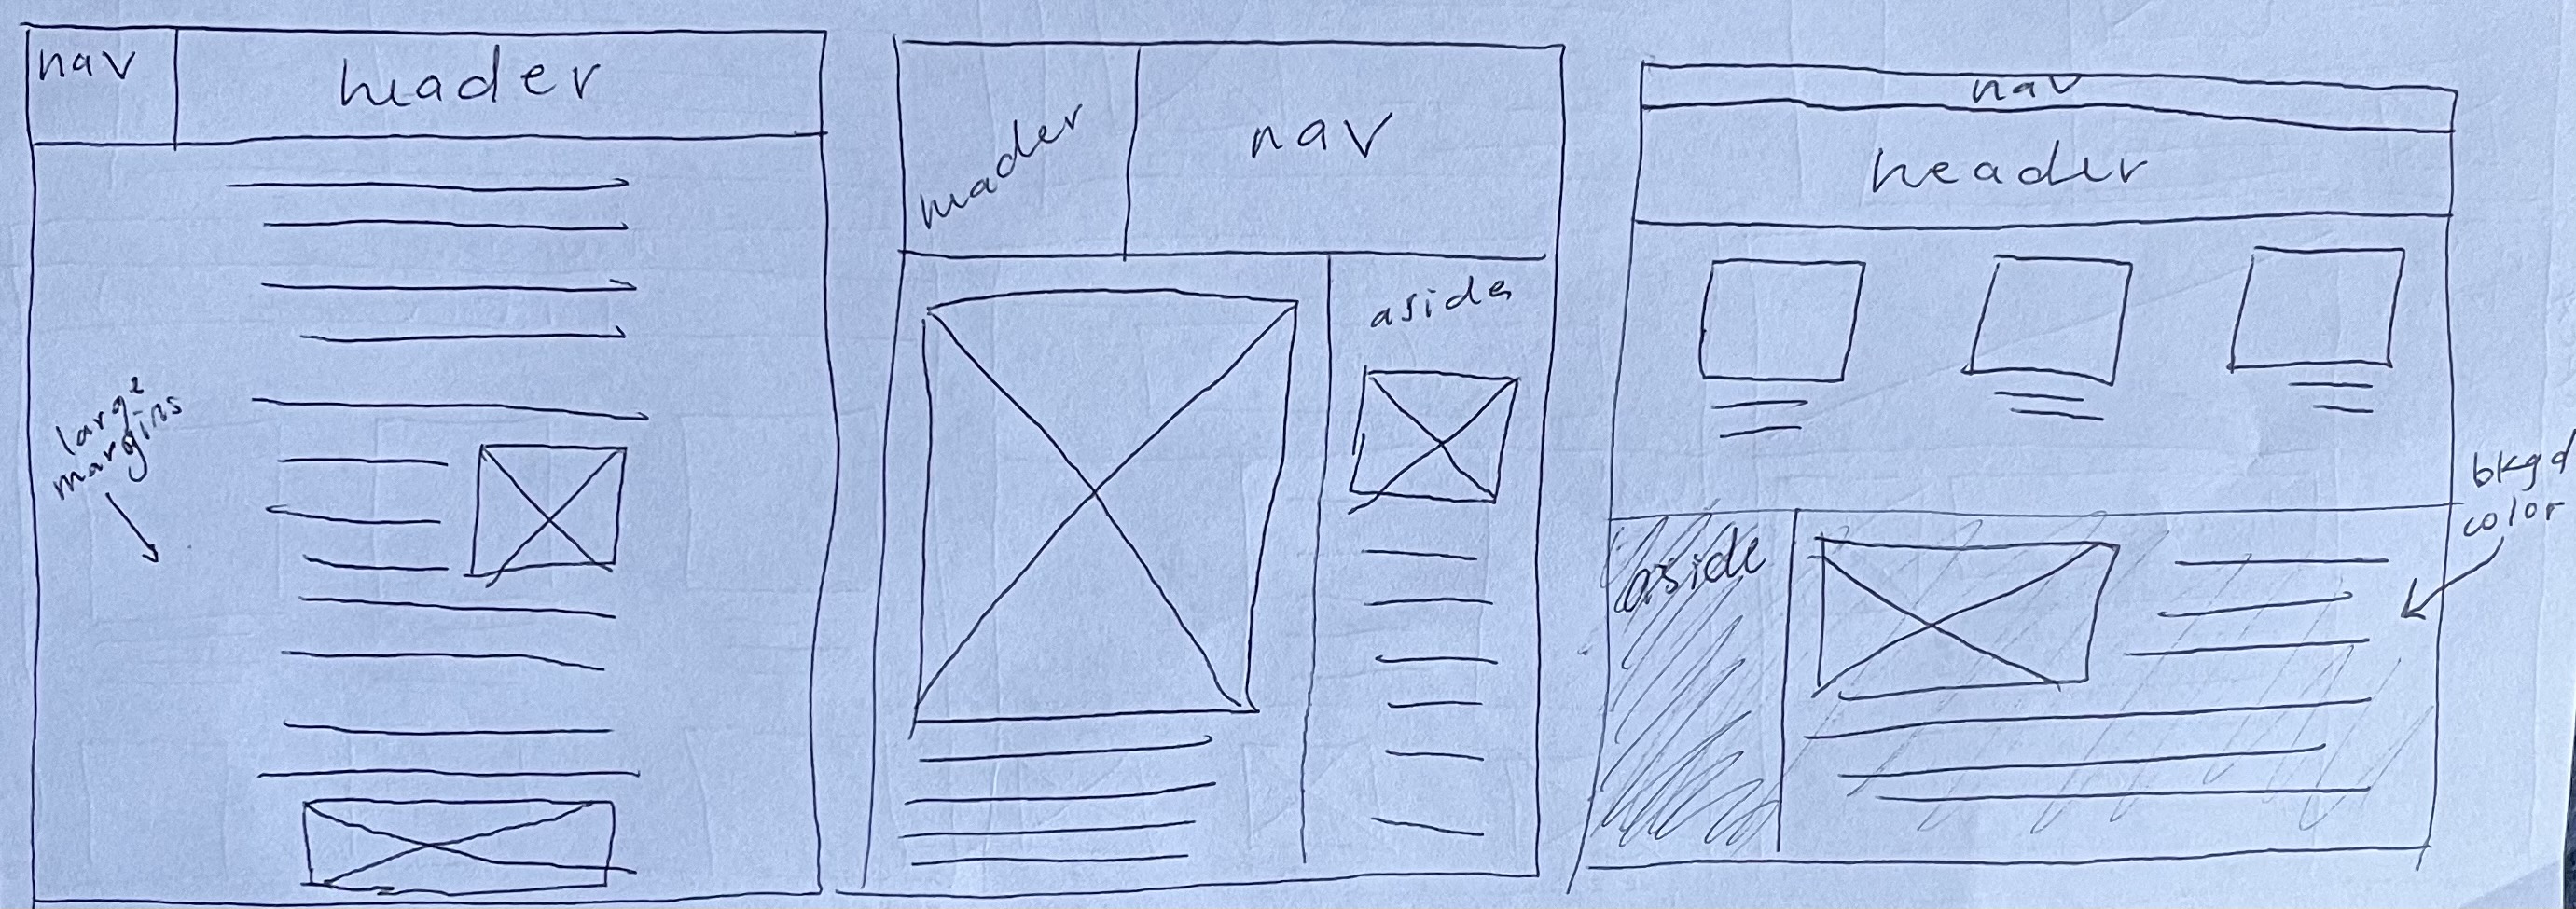 nav
header
large
margins
header
nav
aside
nav
header
aside
bkgd
color